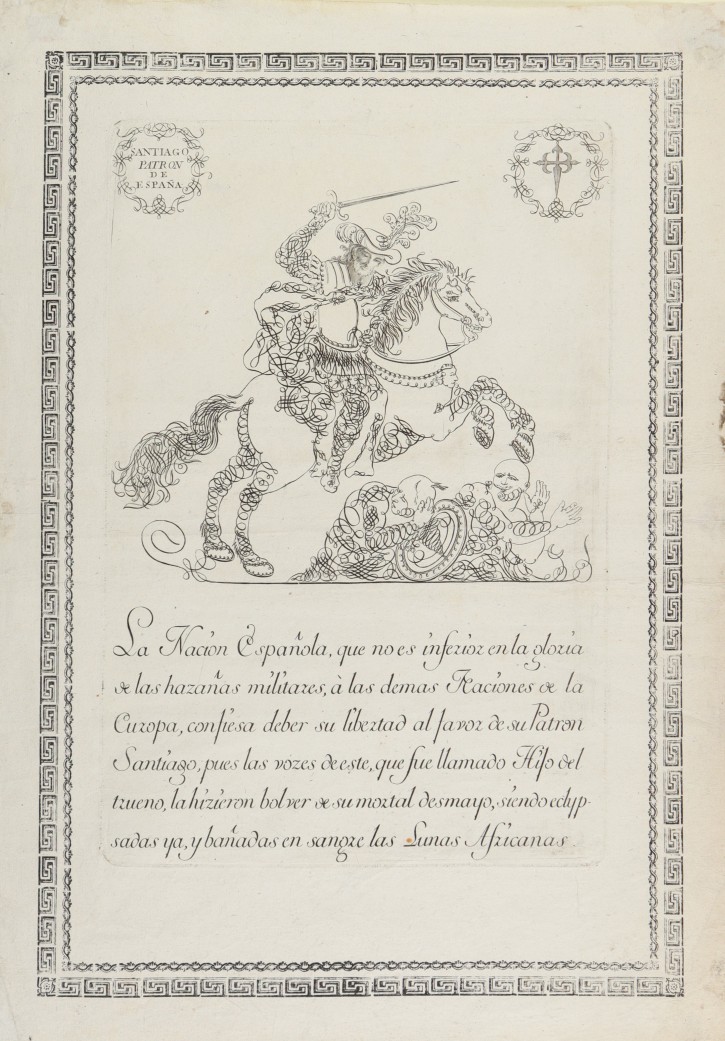 SANTIAGO
PATRON
DE
ESPAÑA
La Nacion Española, que no es inferior en la gloria
de las hazañas militares, à las demas Naciones de la
Europa, confiesa deber su libertad al favor de su Patron
Santiago, pues las vozes de este, que fue llamado Hijo del
trueno, la hizieron bolver de su mortal desmayo, siendo eclyp-
sadas ya, y bañadas en sangre las Lunas Africanas.